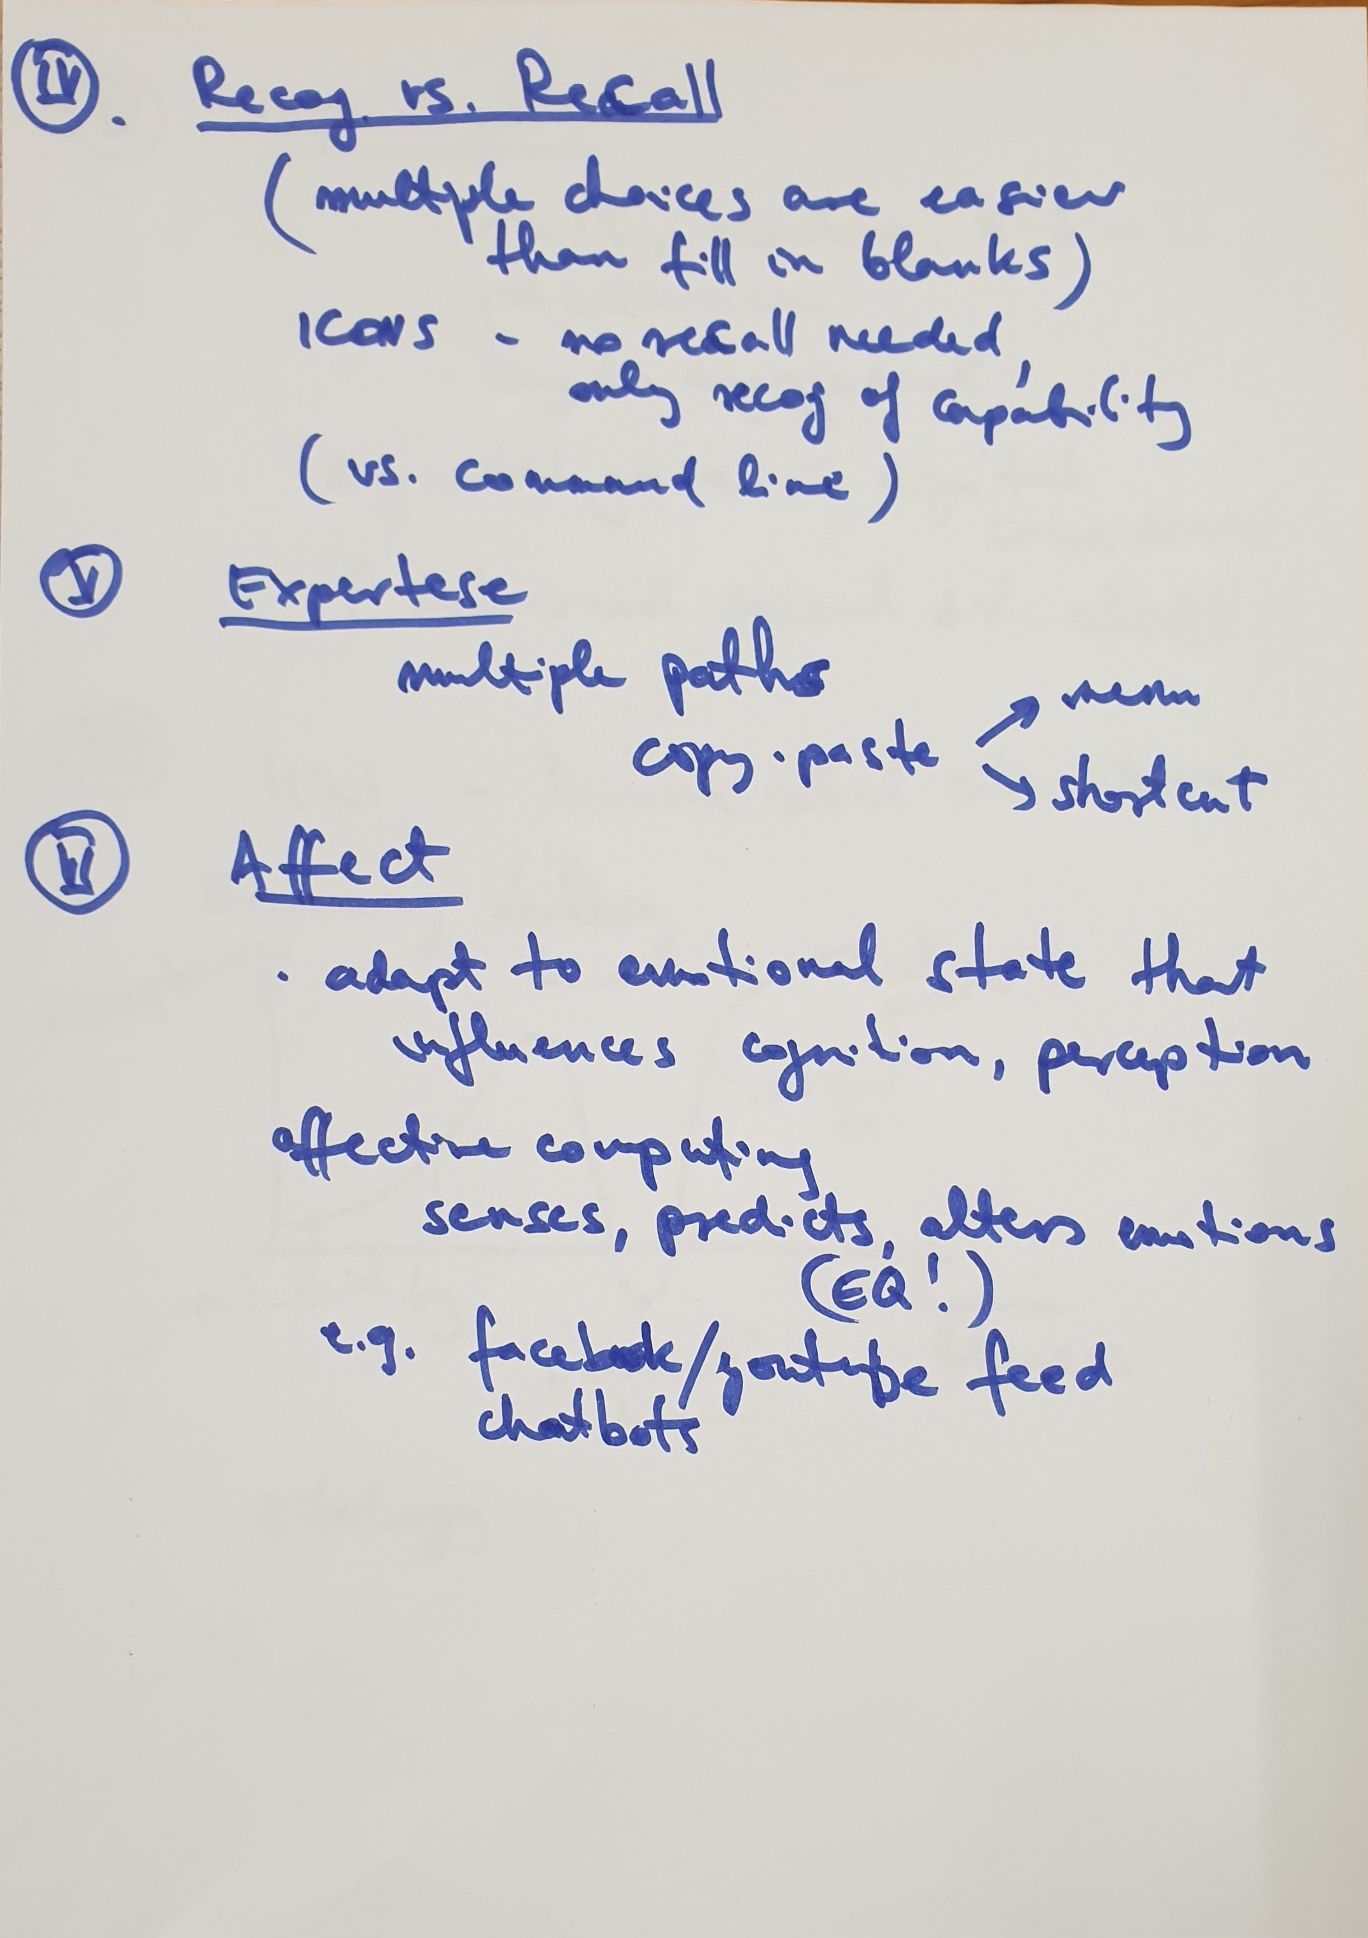 IV. Recog vs. Recall
(multiple choices are easier
than fill in blanks)
ICONS - no recall needed,
only recog of capability
(vs. command line)
V Expertese
multiple paths
copy-paste ↗ menu
↘ shortcut
VI Affect
· adapt to emotional state that
influences cognition, perception
affective computing
senses, predicts, alters emotions
(EQ!)
e.g. facebook/youtube feed
chatbots